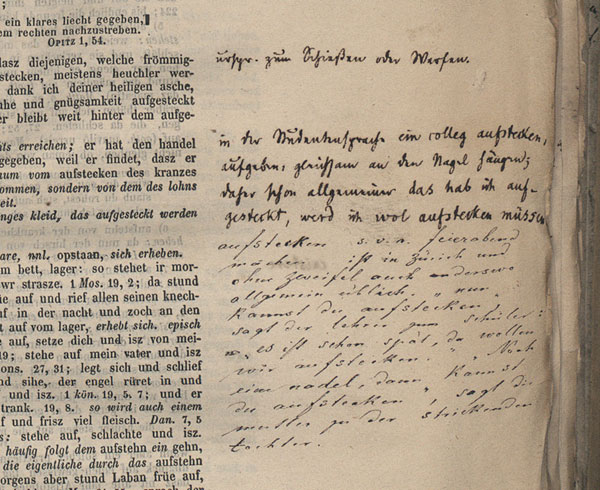 ;
ein klares liecht gegeben,
em rechten nachzustreben.
Opitz 1, 54.
dasz diejenigen, welche frömmig-
stecken, meistens heuchler wer-
dank ich deiner heiligen asche,
he und gnügsamkeit aufgesteckt
er bleibt weit hinter dem aufge-
ts erreichen; er hat den handel
gegeben, weil er findet, dasz er
aum vom aufstecken des kranzes
ommen, sondern von dem des lohns
eit.
nges kleid, das aufgesteckt werden
are, nnl. opstaan, sich erheben.
m bett, lager: so stehet ir mor-
wr strasze. 1 Mos. 19, 2; da stund
ie auf und rief allen seinen knech-
uf in der nacht und zoch an den
t auf vom lager, erhebt sich. episch
e auf, setze dich und isz von mei-
19; stehe auf mein vater und isz
ons. 27, 31; legt sich und schlief
nd sihe, der engel rüret in und
und isz. 1 kön. 19, 5. 7; und er
trank. 19, 8. so wird auch einem
f und frisz viel fleisch. Dan. 7, 5
s: stehe auf, schlachte und isz.
häufig folgt dem aufstehn ein gehn,
die eigentliche durch das aufstehn
orgens aber stund Laban früe auf,
urspr. zum Schießen oder Werfen.
in der Studentensprache ein colleg aufstecken,
aufgeben, gleichsam an den Nagel hängen;
daher schon allgemeiner das hab ich auf-
gesteckt, werd ich wol aufstecken müssen
aufstecken s. v. a. feierabend
machen ist in Zürich und
ohne zweifel auch anderswo
allgemein üblich. „nun
kannst du aufstecken",
sagt der lehrer zum schüler:
„es ist schon spät, da wollen
wir aufstecken." „Noch
eine nadel, dann kannst
du aufstecken", sagt die
mutter zu der strickenden
tochter.